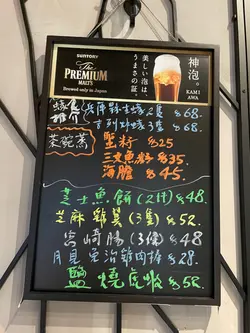 SUNTORY
The
PREMIUM
MALT'S
Brewed only in Japan
美しい泡は、
うまさの証。
神泡。
KAMI
AWA
推介
兵庫縣生蠔 2隻 $68.
吉列蚝 3隻 $68.
茶碗蒸
蟹籽 $25
三文魚籽 $35.
海膽 $45.
芝士魚餅 (2件) $48.
芝麻雞翼 (3隻) $52.
宮崎腸 (3條) $48
月見免治雞肉棒 $28.
鹽燒虎蝦 $58.